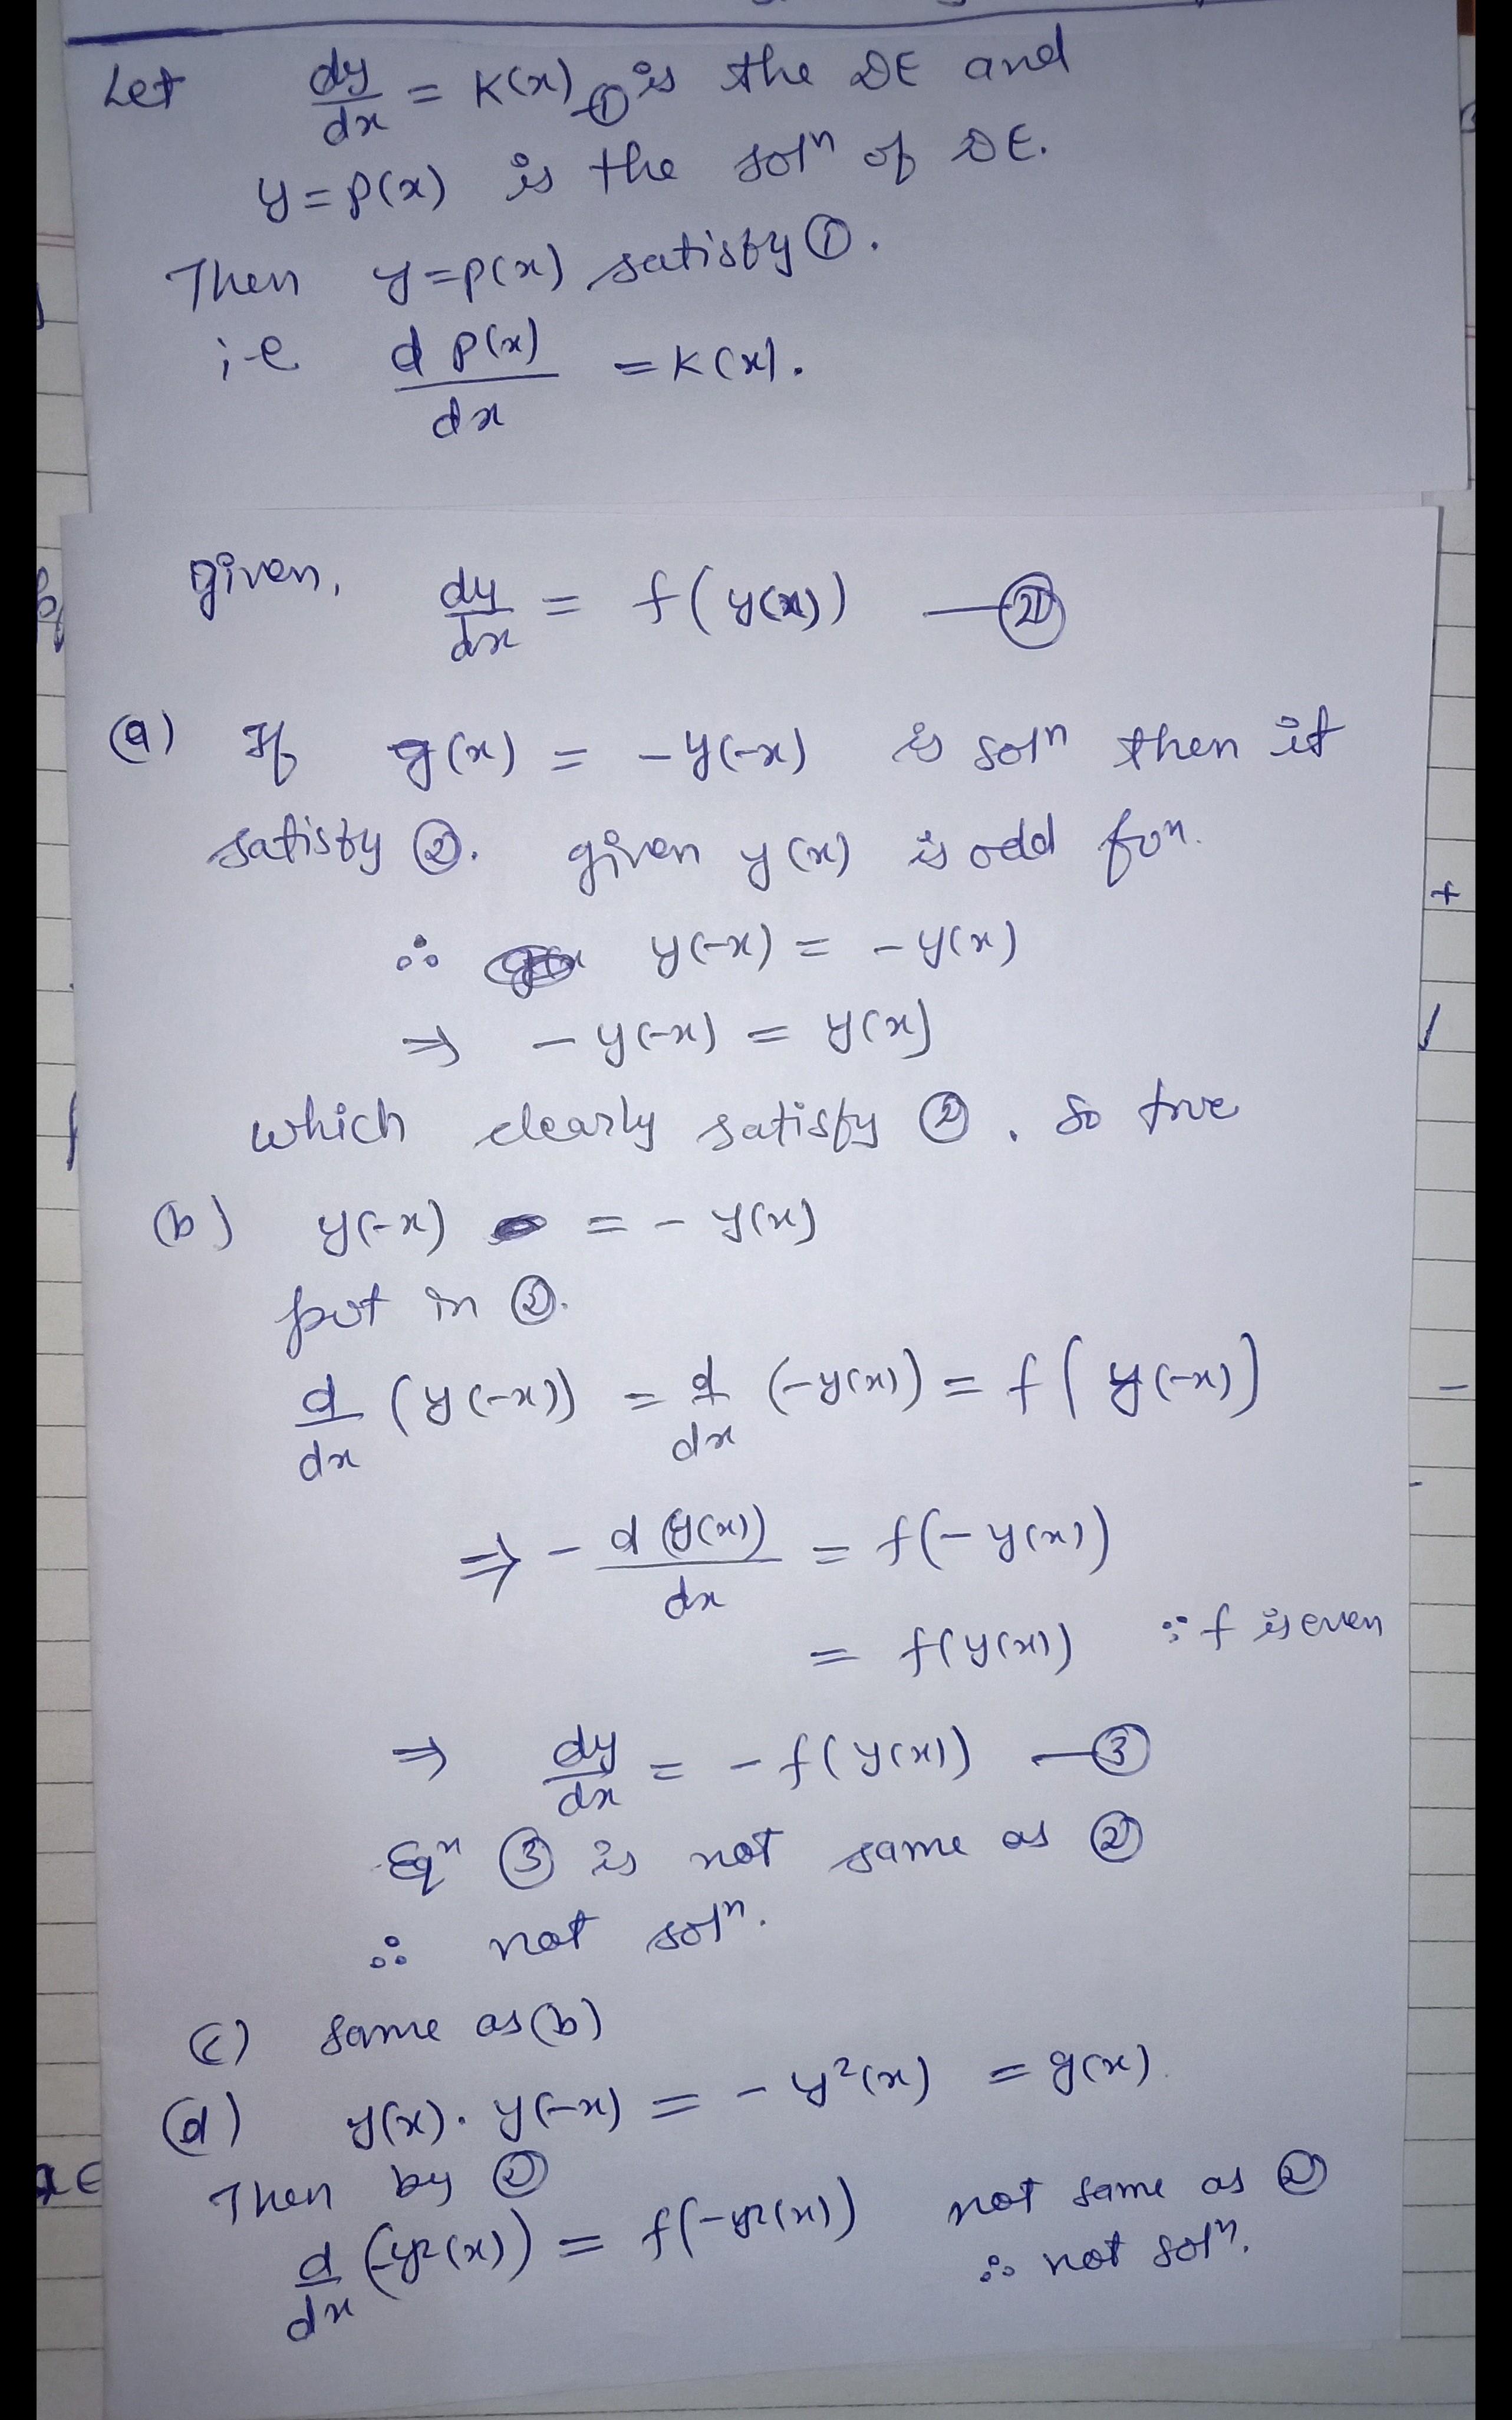 Let dy/dx = K(x) ① is the DE and
y = p(x) is the solⁿ of DE.
Then y=p(x) satisfy ①.
i-e d p(x)/dx = K(x).
given, dy/dx = f(y(x)) — ②
(a) If g(x) = -y(-x) is solⁿ then it
satisfy ②. given y(x) is odd fun.
∴ y(-x) = -y(x)
⇒ -y(-x) = y(x)
which clearly satisfy ②. So true
(b) y(-x) = - y(x)
put in ②.
d/dx (y(-x)) = d/dx (-y(x)) = f(y(-x))
⇒ - d(y(x))/dx = f(-y(x))
= f(y(x)) ∵ f is even
⇒ dy/dx = -f(y(x)) — ③
Eqⁿ ③ is not same as ②
∴ not solⁿ.
(c) same as (b)
(d) y(x). y(-x) = - y²(x) = g(x).
Then by ②
d/dx (-y²(x)) = f(-y²(x)) not same as ②
∴ not solⁿ.